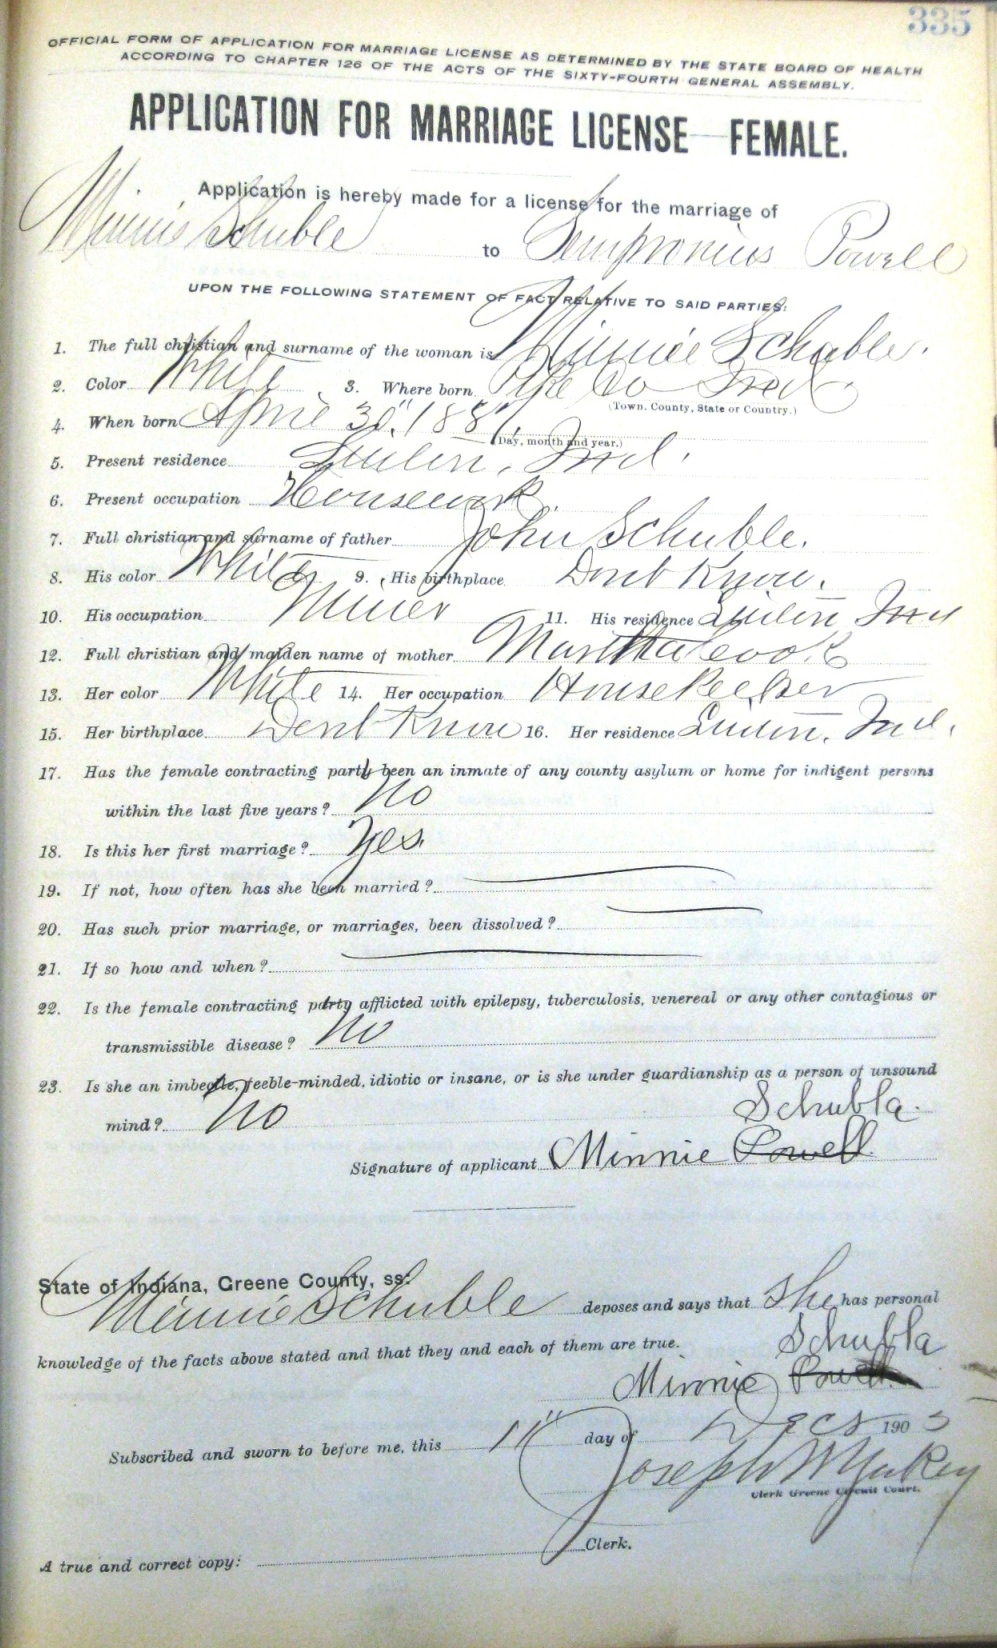 335
OFFICIAL FORM OF APPLICATION FOR MARRIAGE LICENSE AS DETERMINED BY THE STATE BOARD OF HEALTH
ACCORDING TO CHAPTER 126 OF THE ACTS OF THE SIXTY-FOURTH GENERAL ASSEMBLY.
APPLICATION FOR MARRIAGE LICENSE FEMALE.
Application is hereby made for a license for the marriage of
Minnie Schuble to Sempronius Powell
UPON THE FOLLOWING STATEMENT OF FACT RELATIVE TO SAID PARTIES:
1. The full christian and surname of the woman is Minnie Schuble.
2. Color White 3. Where born Pike Co Ind.
(Town, County, State or Country.)
4. When born April 30" 188
(Day, month and year.)
5. Present residence Ind.
6. Present occupation Housework
7. Full christian and surname of father John Schuble.
8. His color White 9. His birthplace Dont Know.
10. His occupation Miner 11. His residence Ind
12. Full christian and maiden name of mother Martha Cook
13. Her color White 14. Her occupation Housekeeper
15. Her birthplace Dont Know 16. Her residence Ind.
17. Has the female contracting party been an inmate of any county asylum or home for indigent persons
within the last five years? No
18. Is this her first marriage? Yes.
19. If not, how often has she been married?
20. Has such prior marriage, or marriages, been dissolved?
21. If so how and when?
22. Is the female contracting party afflicted with epilepsy, tuberculosis, venereal or any other contagious or
transmissible disease? No
23. Is she an imbecile, feeble-minded, idiotic or insane, or is she under guardianship as a person of unsound
mind? No
Schubla.
Signature of applicant Minnie Powell
State of Indiana, Greene County, ss:
Minnie Schuble deposes and says that She has personal
knowledge of the facts above stated and that they and each of them are true.
Schubla
Minnie Powell
Subscribed and sworn to before me, this 11" day of Dec 1905
Joseph W Yakey
Clerk Greene Circuit Court.
Clerk.
A true and correct copy: